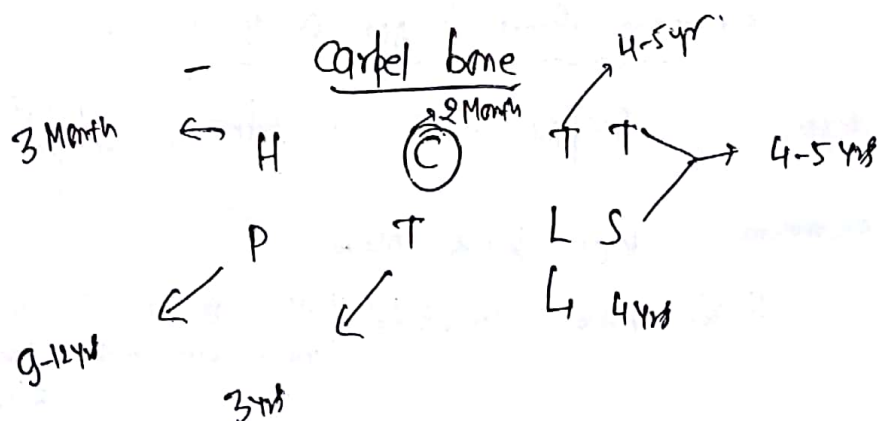 - Carpel bone
4-5yr.
2 Month
3 Month H C T T 4-5 yrs
P T L S
4 yrs
9-12yrs
3 yrs